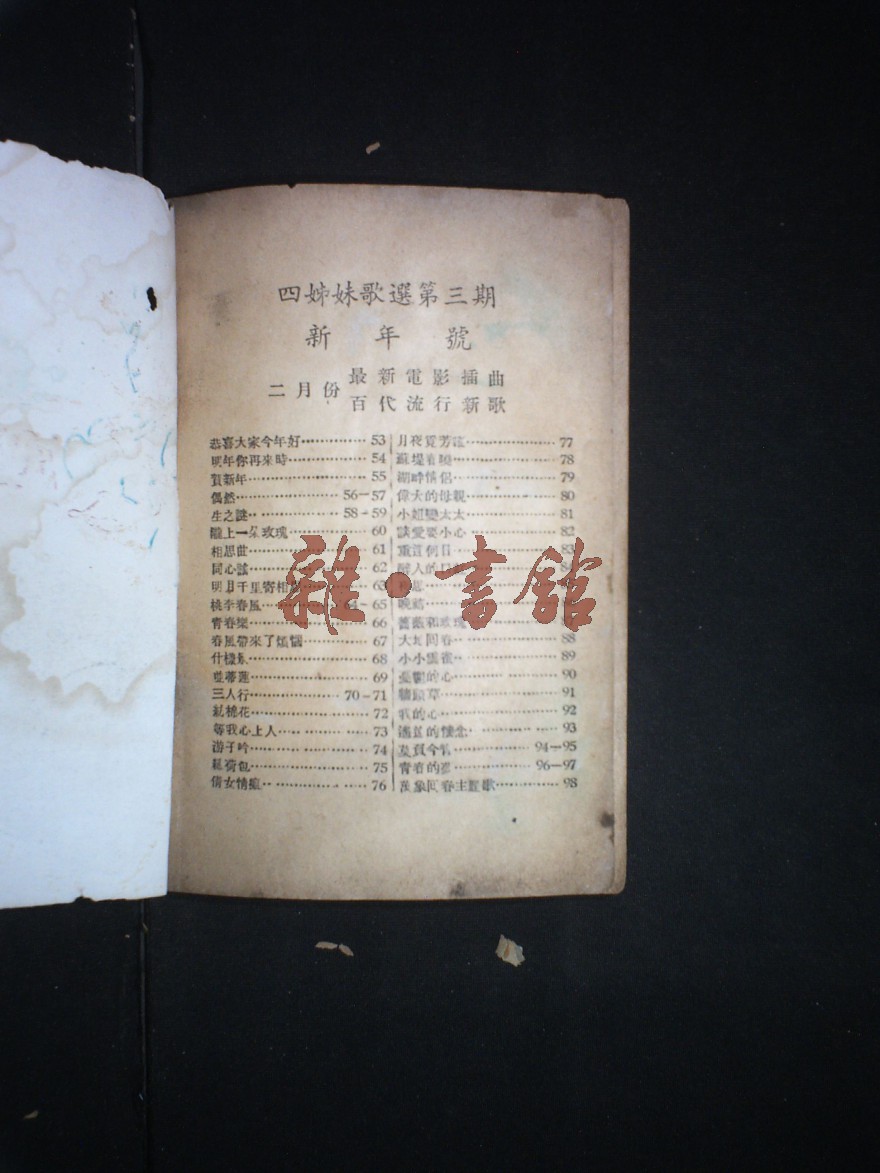 四姊妹歌選第三期
新年號
二月份 最新電影插曲
百代流行新歌
恭喜大家今年好 53
明年你再來時 54
賀新年 55
偶然 56—57
生之謎 58—59
隴上一朵玫瑰 60
相思曲 61
同心謠 62
明月千里寄相思 63
桃李春風 64—65
青春樂 66
春風帶來了煩惱 67
68
並蒂蓮 69
三人行 70—71
紅棉花 72
等我心上人 73
游子吟 74
荷包 75
倩女情 76
月夜覓芳 77
蘇堤春曉 78
湖畔情侶 79
偉大的母親 80
小姐變太太 81
談愛要小心 82
重 83
醉人的口 84
晚
薔薇和玫瑰
大地回春 88
小小雲雀 89
的心 90
91
我的心 92
的懷念 93
94—95
青春的 96—97
萬象回春主題歌 98
雜·書館